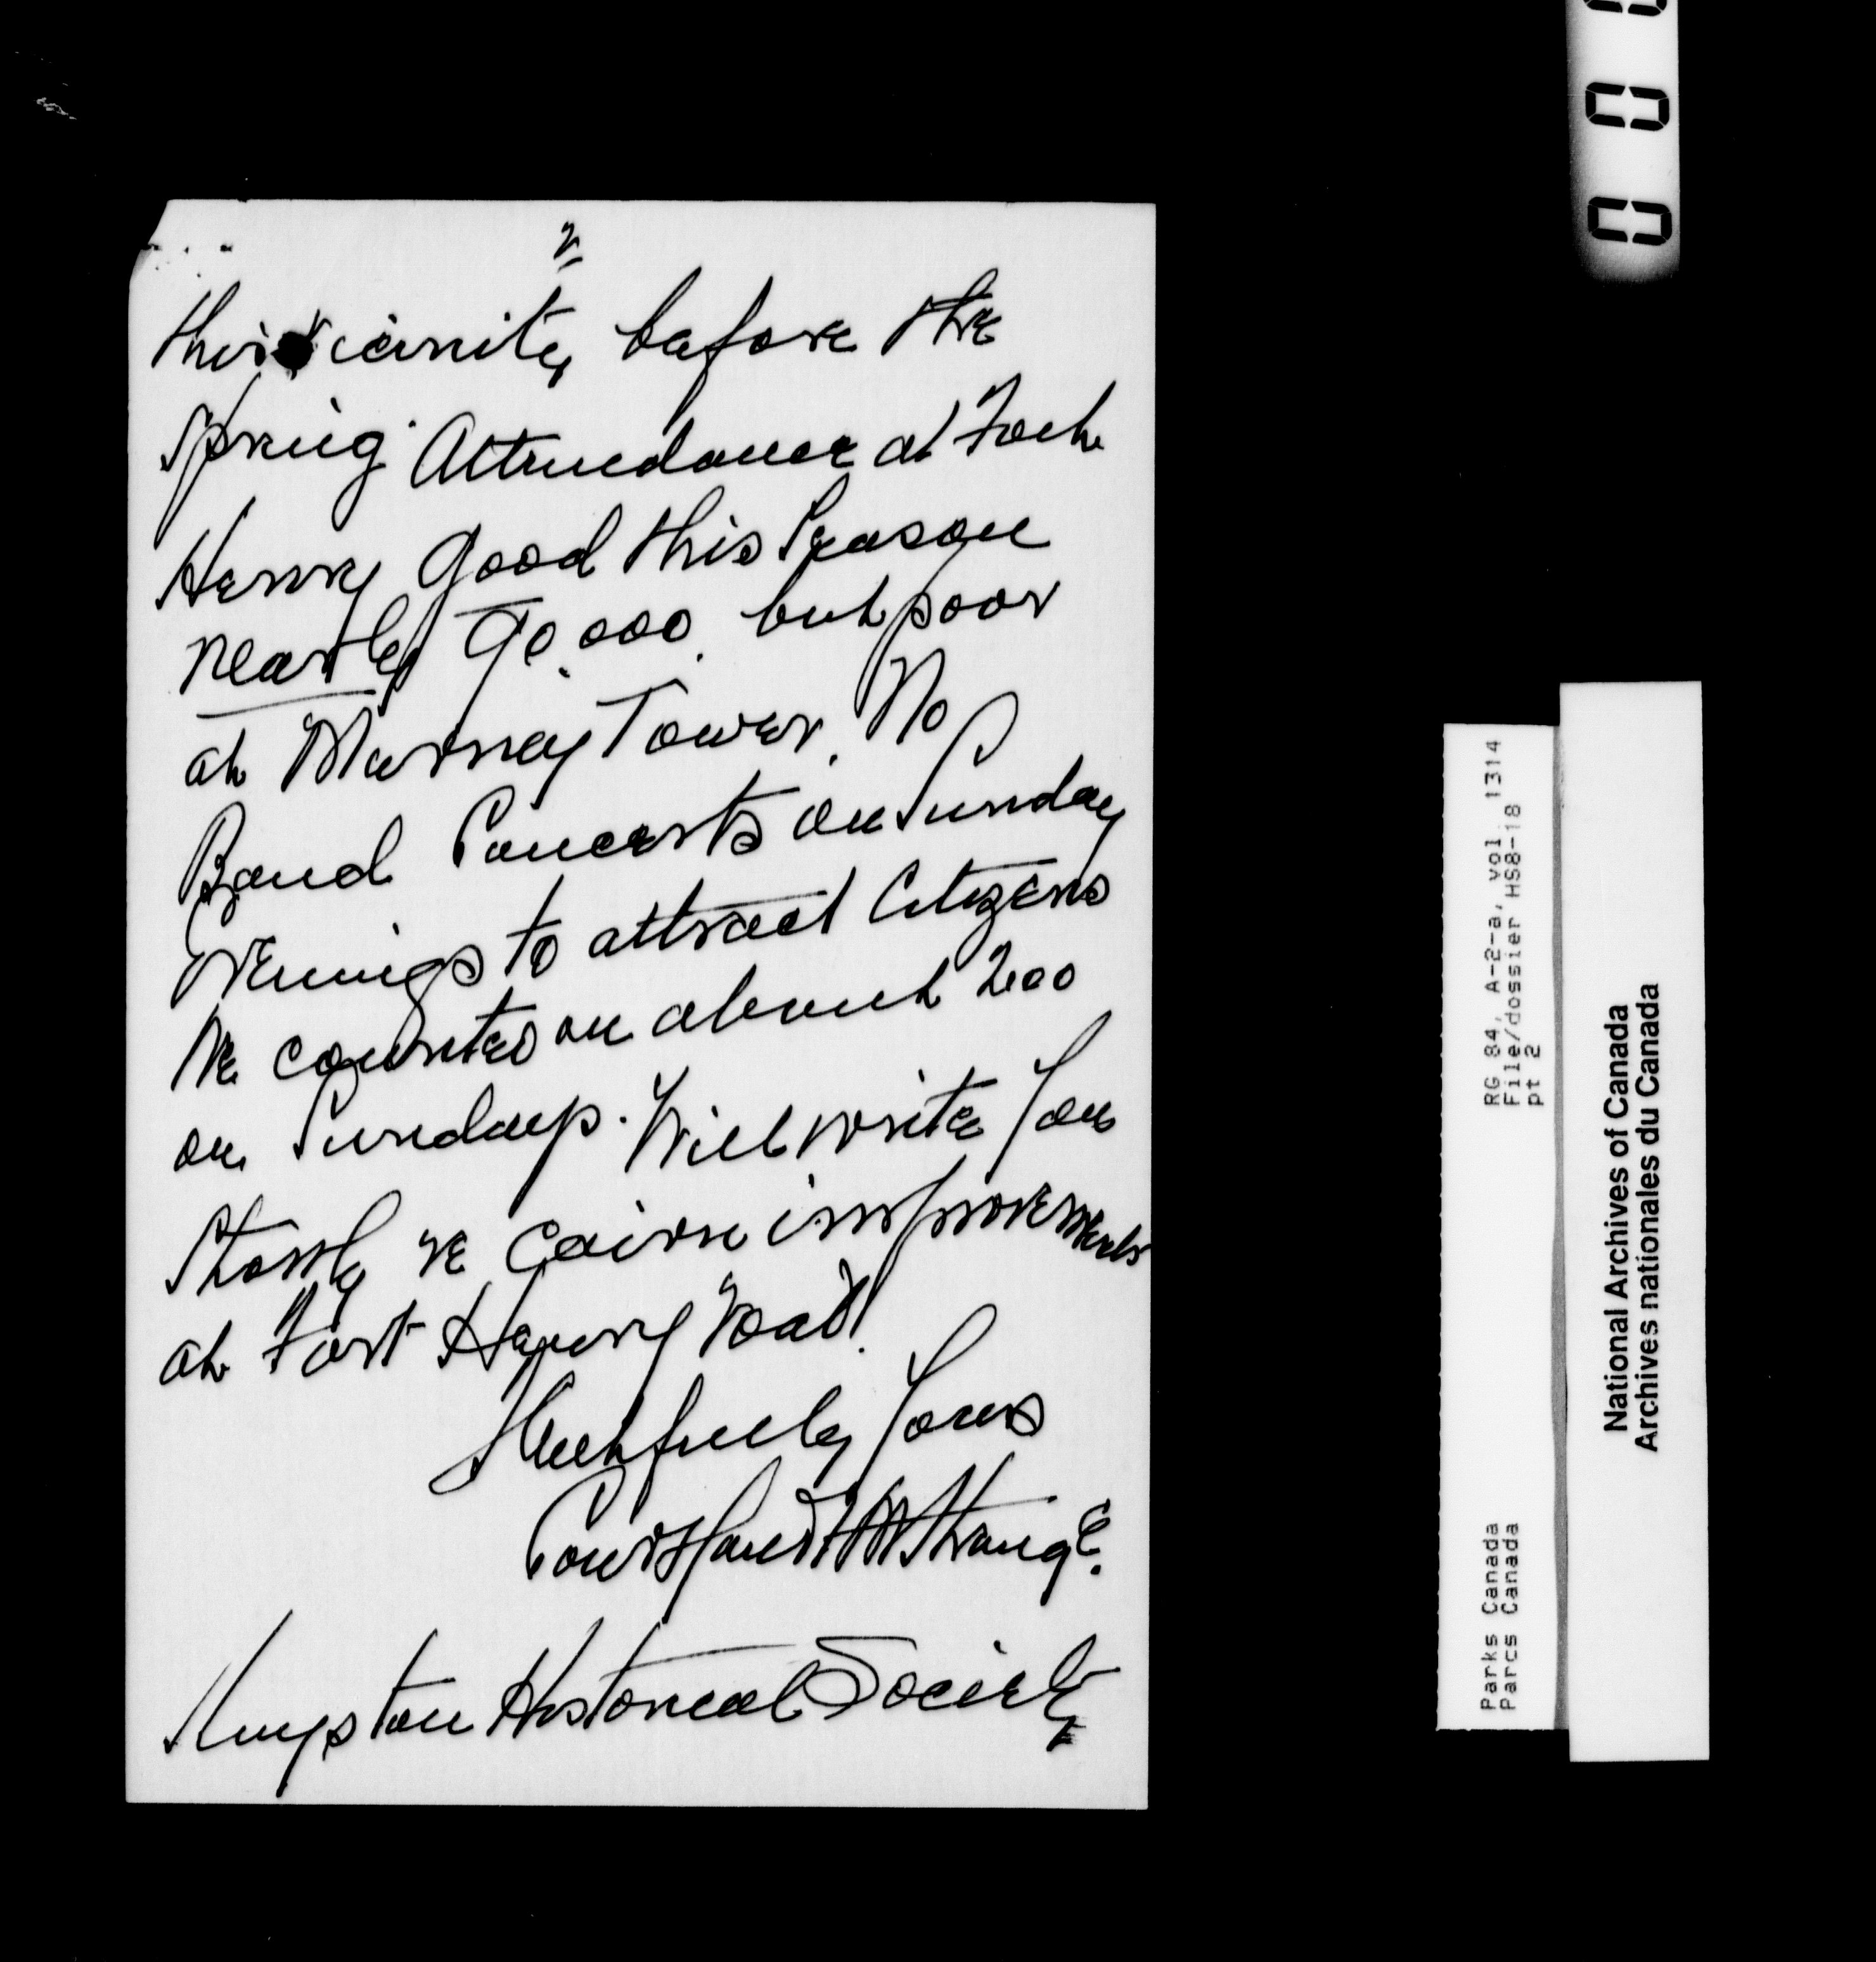 2
this vicinity before the
Spring. Attendance at Fort
Henry Good this Season
nearly 90,000. but poor
at Murney Tower. No
Band Concerts on Sunday
Evenings to attract Citizens
We counted on about 200
on Sundays. Will write You
Shortly re Cairn improvements
at Fort Henry road.
Faithfully Yours
Strange.
Kingston Historical Society
0 0 0
RG 84, A-2-a, vol. 1314
File/dossier HS8-18
pt 2
Parks Canada
Parcs Canada
National Archives of Canada
Archives nationales du Canada